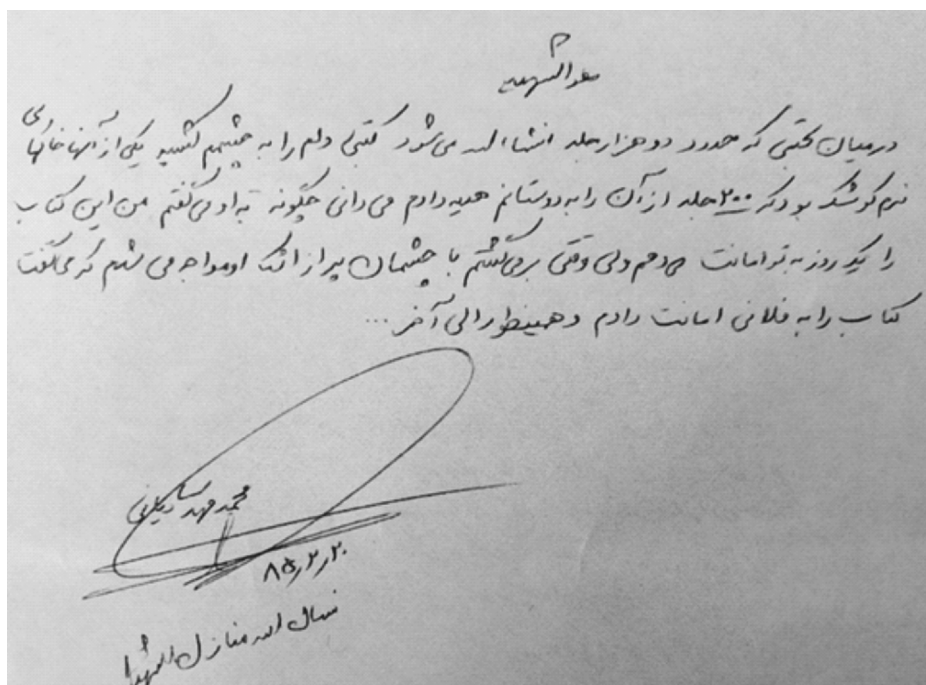 هو الشهید
در میان کتبی که حدود دو هزار جلد انشاء الله می شود کتبی دلم را به چشمم کشید یکی از آنها خاکهای
نرم کوشک بود که ۲۰۰ جلد از آن را به دوستانم هدیه دادم می دانی چگونه به او می گفتم من این کتاب
را یک روز به تو امانت می دهم ولی وقتی برمی گشتم با چشمان پر از اشک او مواجه می شدم که می گفت
کتاب را به فلانی امانت دادم و همینطور الی آخر ...
محمد مهدی
۸۵٫۲٫۲۰
نسال الله منازل الشهدا